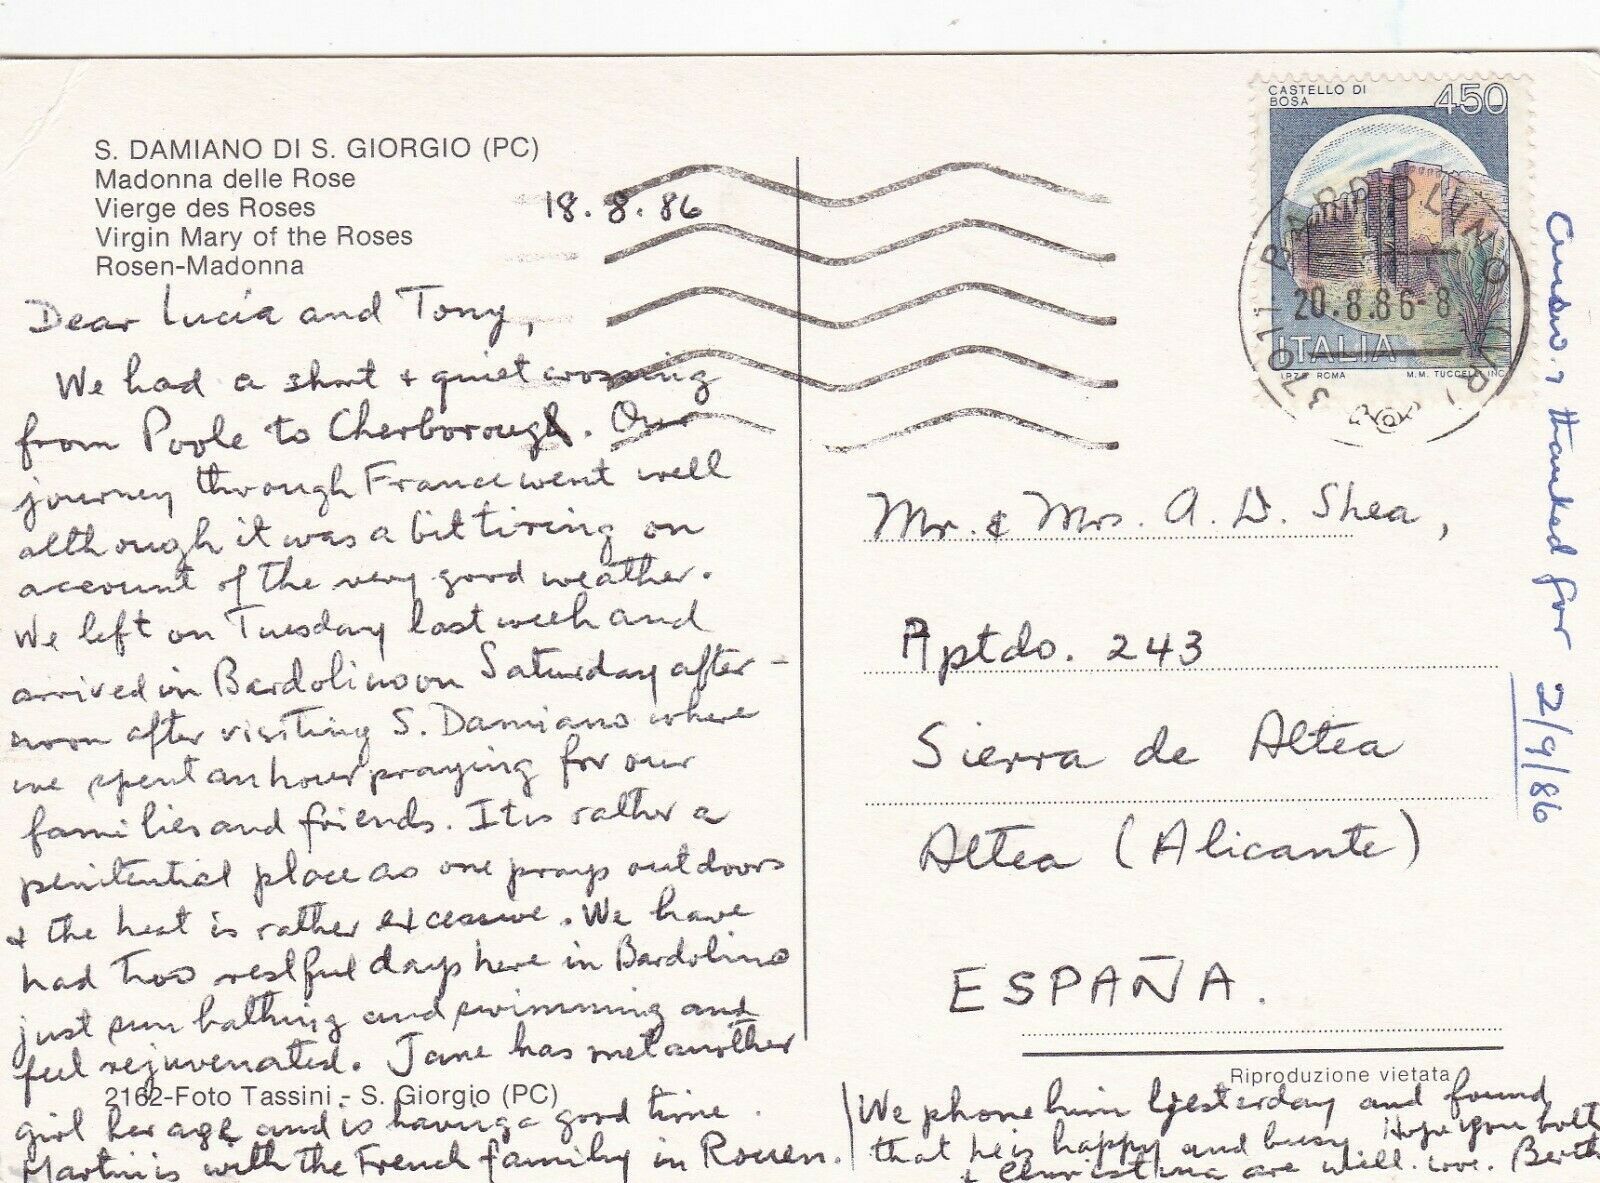 S. DAMIANO DI S. GIORGIO (PC)
Madonna delle Rose
Vierge des Roses
Virgin Mary of the Roses
Rosen-Madonna
18.8.86
Dear Lucia and Tony,
We had a short + quiet crossing
from Poole to Cherborough. Our
journey through France went well
although it was a bit tiring on
account of the very good weather.
We left on Tuesday last week and
arrived in Bardolino on Saturday after-
noon after visiting S. Damiano where
we spent an hour praying for our
families and friends. It is rather a
penitential place as one prays outdoors
+ the heat is rather excessive. We have
had two restful days here in Bardolino
just sun bathing and swimming and
feel rejuvenated. Jane has met another
2162-Foto Tassini - S. Giorgio (PC)
girl her age and is having a good time.
Martin is with the French family in Rouen.
We phone him yesterday and found
that he is happy and busy. Hope you both
+ Christina are well. Love. Berth
CASTELLO DI
BOSA
450
ITALIA
I.P.Z.S. ROMA
M.M. TUCCELLI INC.
37011 BARDOLINO (VR)
20.8.86-8
Mr. & Mrs. A. D. Shea,
Aptdo. 243
Sierra de Altea
Altea (Alicante)
ESPAÑA.
Riproduzione vietata
thanked for 2/9/86